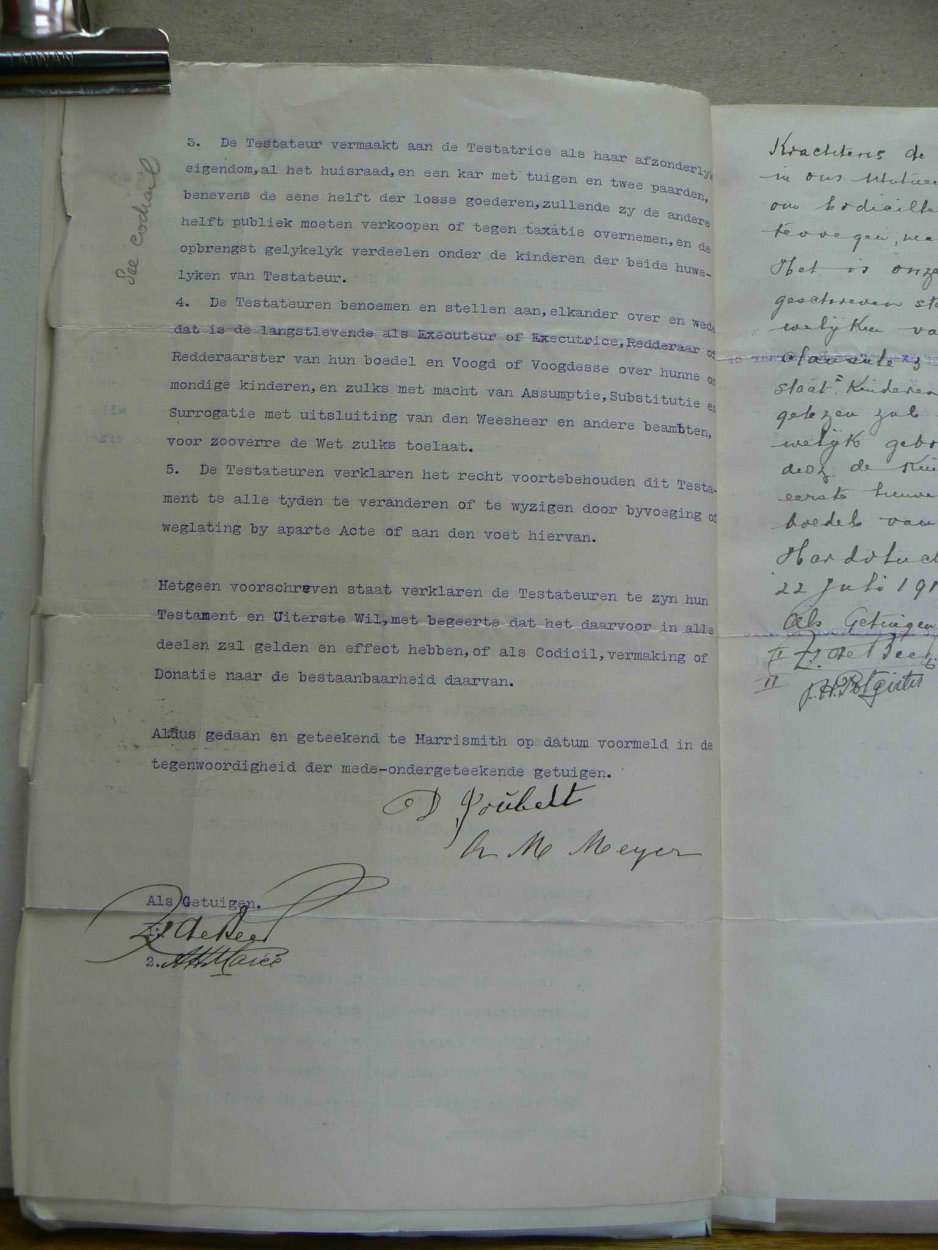 TAIWAN
See Codicil
3. De Testateur vermaakt aan de Testatrice als haar afzonderlyk
eigendom,al het huisraad,en een kar met tuigen en twee paarden,
benevens de eene helft der losse goederen,zullende zy de andere
helft publiek moeten verkoopen of tegen taxatie overnemen,en de
opbrengst gelykelyk verdeelen onder de kinderen der beide huwe-
lyken van Testateur.
4. De Testateuren benoemen en stellen aan,elkander over en wede
dat is de langstlevende als Executeur of Executrice,Redderaar of
Redderaarster van hun boedel en Voogd of Voogdesse over hunne o
mondige kinderen,en zulks met macht van Assumptie,Substitutie e
Surrogatie met uitsluiting van den Weesheer en andere beambten,
voor zooverre de Wet zulks toelaat.
5. De Testateuren verklaren het recht voortebehouden dit Testa-
ment te alle tyden te veranderen of te wyzigen door byvoeging of
weglating by aparte Acte of aan den voet hiervan.
Hetgeen voorschreven staat verklaren de Testateuren te zyn hun
Testament en Uiterste Wil,met begeerte dat het daarvoor in alle
deelen zal gelden en effect hebben,of als Codicil,vermaking of
Donatie naar de bestaanbaarheid daarvan.
Aldus gedaan en geteekend te Harrismith op datum voormeld in de
tegenwoordigheid der mede-ondergeteekende getuigen.
D Joubert
M Meyer
Als Getuigen.
2.
Krachtens de
in ons
om
tevoegen,
Het is onze
geschreven
welyken va
clausule 3
staat "Kinderen
gelezen zal
welijk gebo
de
eerste huwe
boedel van
22 Juli 191
Als Getuigen
I
II J.H. Potgieter